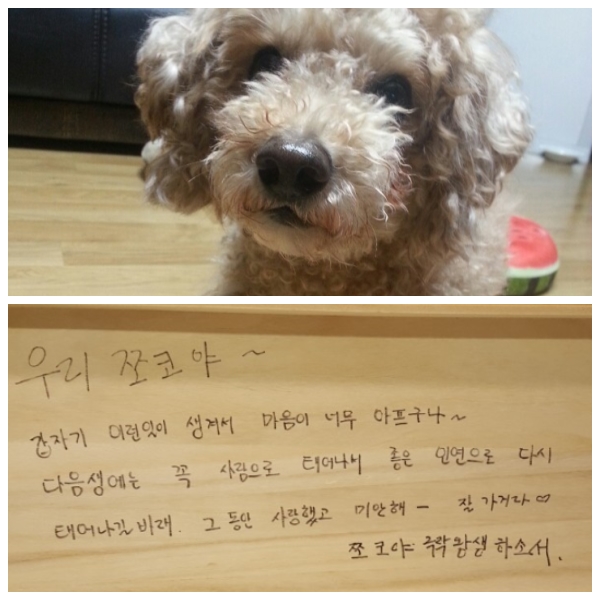 우리 쪼코야~
갑자기 이런일이 생겨서 마음이 너무 아프구나~
다음생에는 꼭 사람으로 태어나서 좋은 인연으로 다시
태어나길 바래. 그 동안 사랑했고 미안해 - 잘 가거라 ♡
쪼코야 극락왕생 하소서.